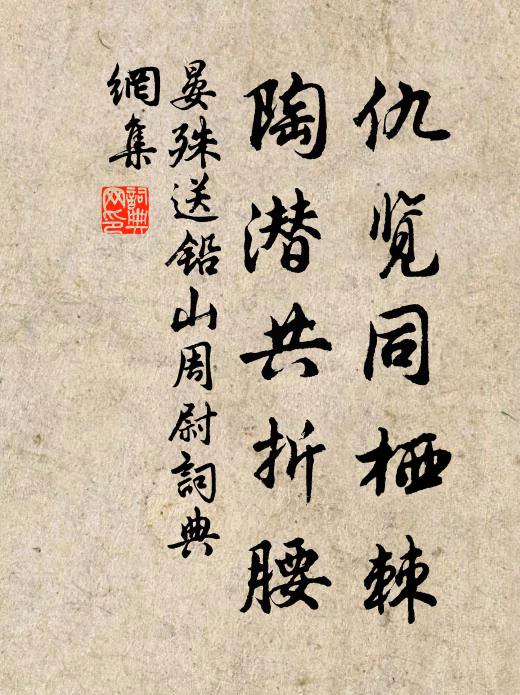 仇览同栖棘
陶潜共折腰
晏殊送铅山周尉詞典
網集
詞典網印